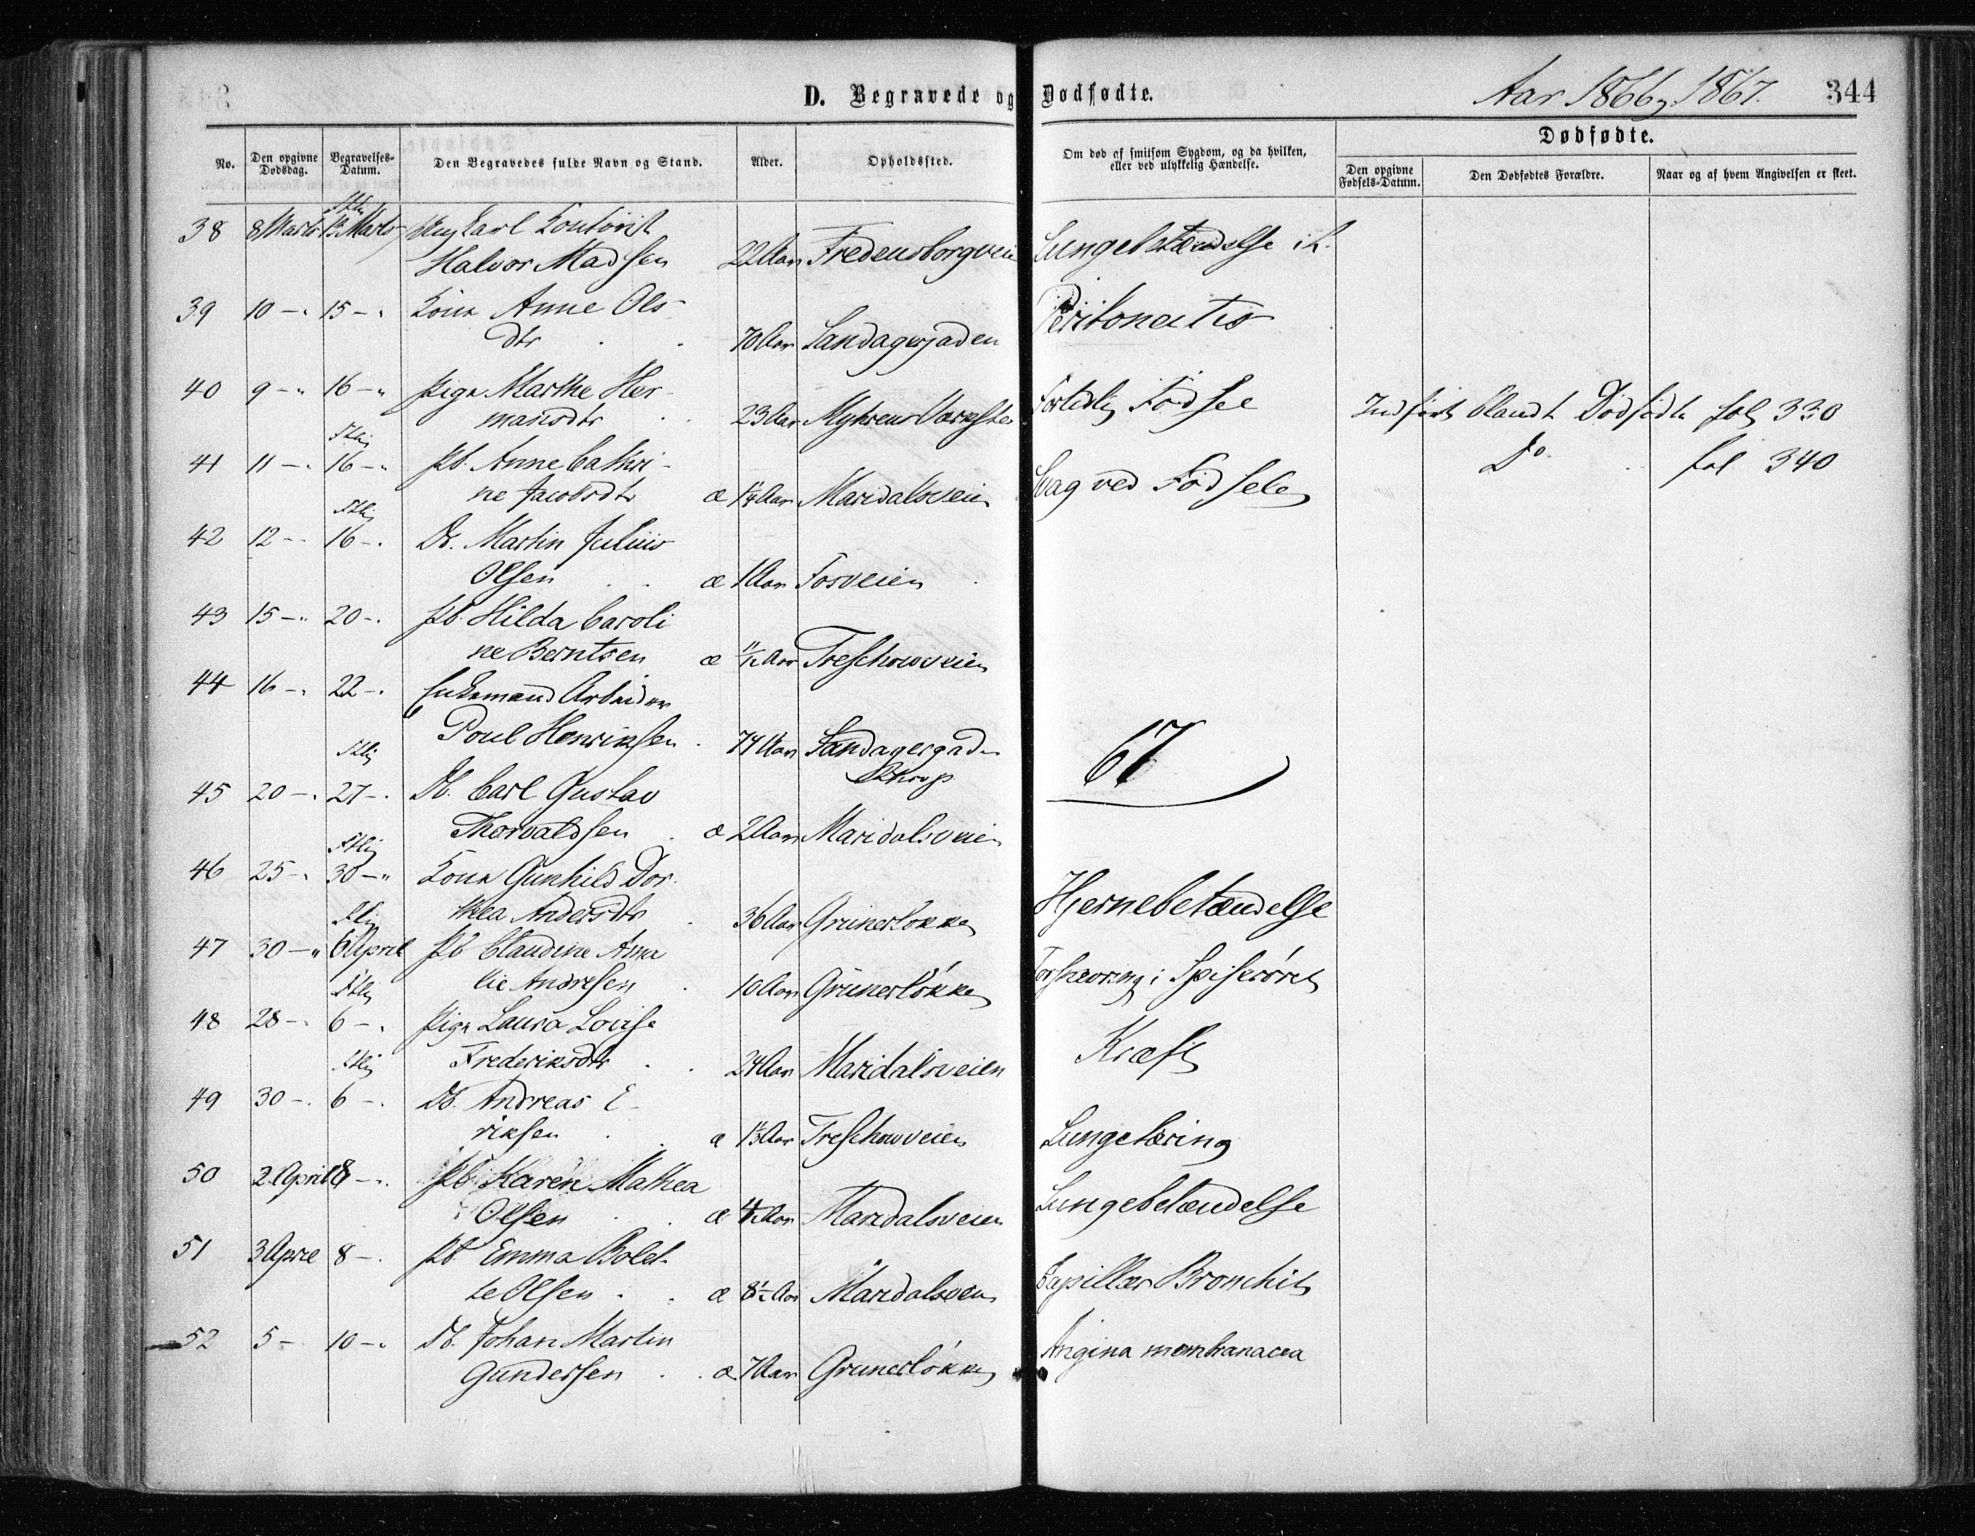 D. Begravede og Dødfødte.
Aar 1866, 1867. 344
No. Den opgivne Dødsdag. Begravelses-Datum. Den Begravedes fulde Navn og Stand. Alder. Opholdssted. Om død af smitsom Sygdom, og da hvilken, eller ved ulykkelig Hændelse.
Dødfødte.
Den opgivne Fødsels-Datum. Den Dødfødtes Forældre. Naar og af hvem Angivelsen er skeet.
38 8 Marts Marts Carl
Halvor Madsen 22 Aar Fredensborgveien Lungebetændelse
39 10 -" 15 -" Kone Anne Ols-
dtr 70 Aar Sandagergaden Peritonitis
40 9 -" 16 -" Pige Marthe Her-
mansdtr 23 Aar Myhrens Værksted Fortidlig Fødsel Indført blandt Dødfødte fol 330
41 11 -" 16 -" Pb. Anne Cathri-
ne Jacobsdtr æ 1/4 Aar Maridalsveien Svag ved Fødselen Do fol 340
42 12 - 16 - Db. Martin Julius
Olsen æ 1 Aar Fosveien
43 15 -" 20 - Pb. Hilda Caroli
ne Berntsen æ 11/12 Aar Treschowveien
44 16 - 22 - Enkemand Arbeider
Poul Henriksen 74 Aar Sandagergaden
67
45 20 - 27 - Db. Carl Gustav
Thorvaldsen æ 2 Aar Maridalsveien
46 25 - 30 -" Kone Gunhild Dor-
thea Andersdtr 36 Aar Grünerløkken Hjernebetændelse
47 30 -" 6 April Pb Claudine Ama
lie Andresen 10 Aar Grünerløkken Forsnevring i Spiserøret
48 28 - 6 - Pige Laura Lovise
Frederiksdtr 24 Aar Maridalsveien Kræft
49 30 - 6 - Db. Andreas E-
riksen æ 1 1/2 Aar Treschowveien Lungetæring
50 2 April 8 - Pb Karen Mathea
Olsen æ Aar Maridalsveien Lungebetændelse
51 3 April 8 - Pb Emma Bolet-
te Olsen æ Aar Maridalsveien Capillær Bronchit
52 5 - 10 - Db. Johan Martin
Gundersen æ 7 Aar Grünerløkken Angina membranacea